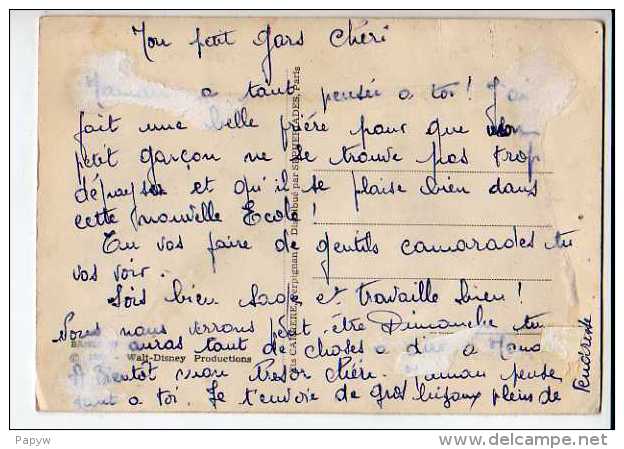 Mon petit gars chéri
Maman a tant pensée a toi ! J'ai
fait une belle prière pour que mon
petit garçon ne se trouve pas trop
dépaysé et qu'il se plaise bien dans
cette nouvelle Ecole !
Tu vas faire de gentils camarades tu
vas voir.
Sois bien sage et travaille bien !
Nous nous verrons peut être Dimanche tu
auras tant de choses a dire a Mama
A Bientôt mon Tresor chéri. Maman pense
tant a toi. Je t'envoie de gros bisoux pleins de
tendresse
Walt-Disney Productions
Perpignan - Distribué par SUPERCADES, Paris
Papyw
www.delcampe.net